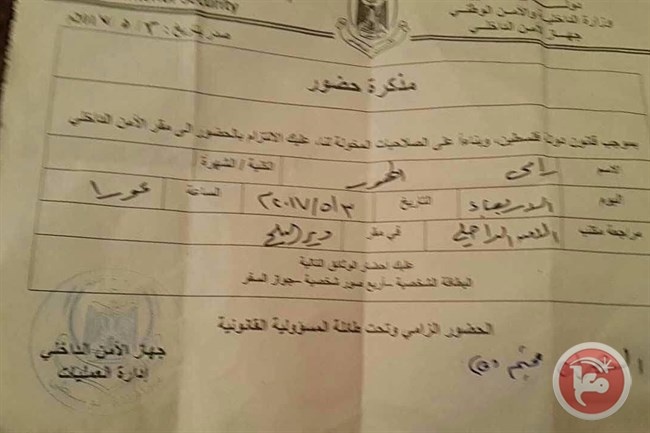 وزارة الداخلية والأمن الوطني
جهاز الأمن الداخلي
صدر بتاريخ: ٢٠١٧/٥/٣
مذكرة حضور
بموجب قانون دولة فلسطين، وبناءاً على الصلاحيات المخولة لنا، عليك الالتزام بالحضور الى مقر الأمن الداخلي
الاسم رامي الكنية / الشهرة
اليوم الاربعاء التاريخ ٢٠١٧/٥/٣ الساعة فورا
مراجعة مكتب الأمن الداخلي في مقر دير البلح
عليك احضار الوثائق التالية
البطاقة الشخصية -أربع صور شخصية -جواز السفر
الحضور الزامي وتحت طائلة المسؤولية القانونية
جهاز الأمن الداخلي
إدارة العمليات
معا